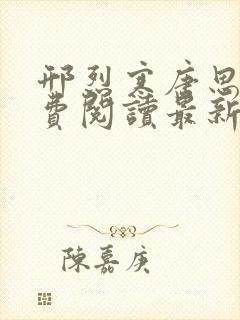 邢烈寒唐思
費閱讀最新
陳嘉庚